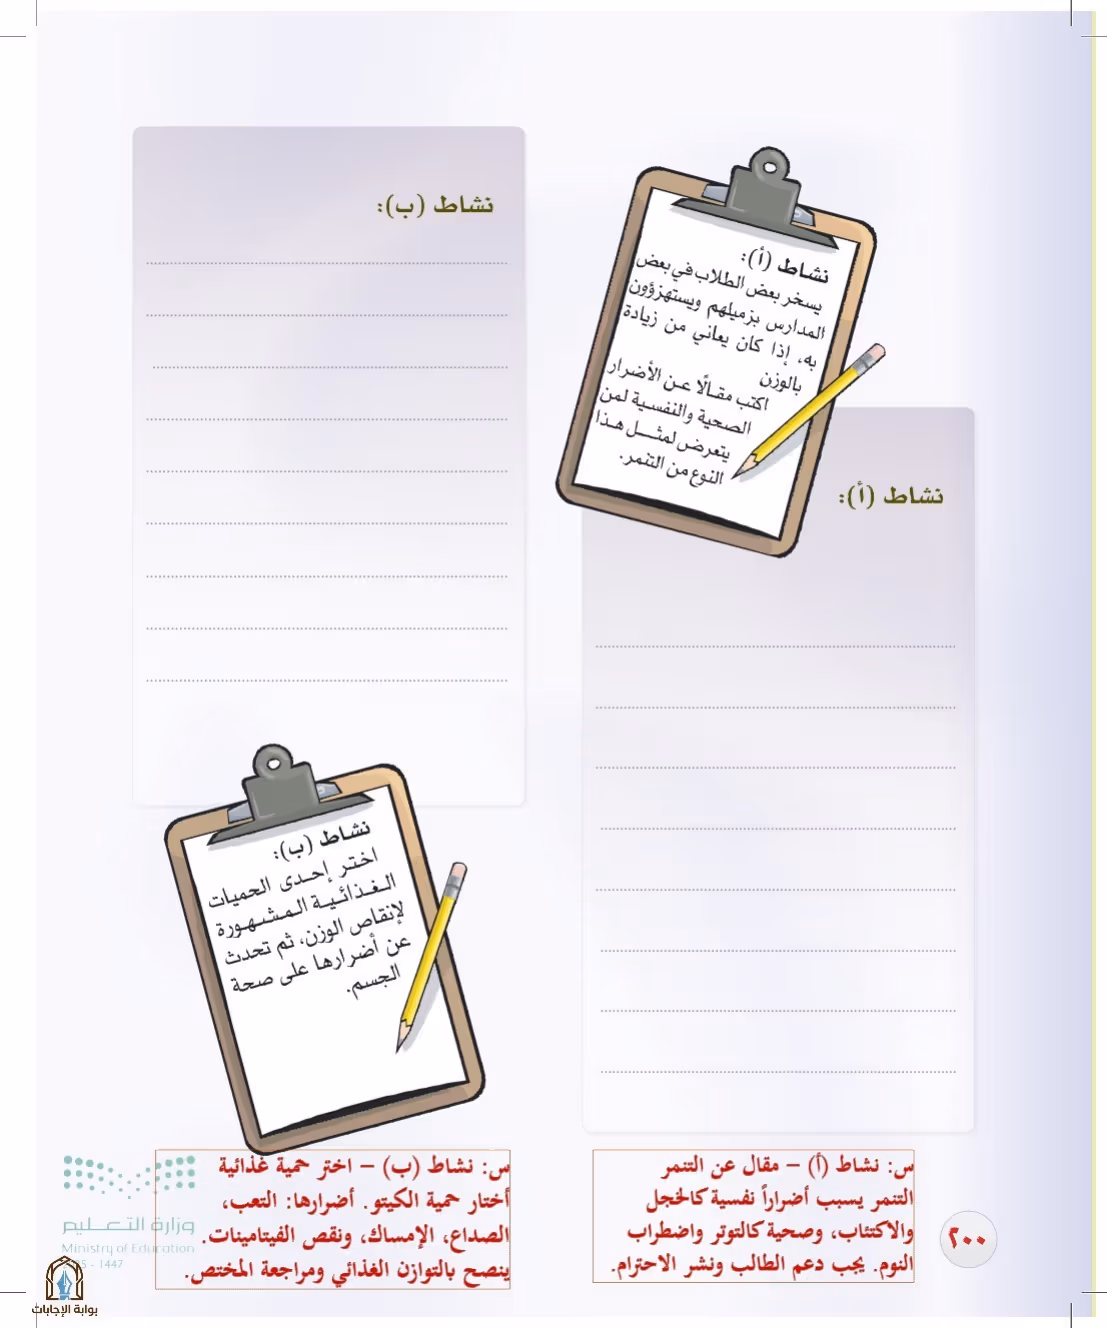 نشاط (أ):
يسخر بعض الطلاب في بعض
المدارس بزميلهم ويستهزؤون
به، إذا كان يعاني من زيادة
بالوزن
اكتب مقالًا عن الأضرار
الصحية والنفسية لمن
يتعرض لمثل هذا
النوع من التنمر.
نشاط (أ):
نشاط (ب):
نشاط (ب):
اختر إحدى الحميات
الغذائية المشهورة
لإنقاص الوزن، ثم تحدث
عن أضرارها على صحة
الجسم.
س: نشاط (أ) – مقال عن التنمر
التنمر يسبب أضراراً نفسية كالخجل
والاكتئاب، وصحية كالتوتر واضطراب
النوم. يجب دعم الطالب ونشر الاحترام.
س: نشاط (ب) – اختر حمية غذائية
أختار حمية الكيتو. أضرارها: التعب،
الصداع، الإمساك، ونقص الفيتامينات.
ينصح بالتوازن الغذائي ومراجعة المختص.
وزارة التعليم
Ministry of Education
5 - 1447
بوابة الإجابات
٢٠٠